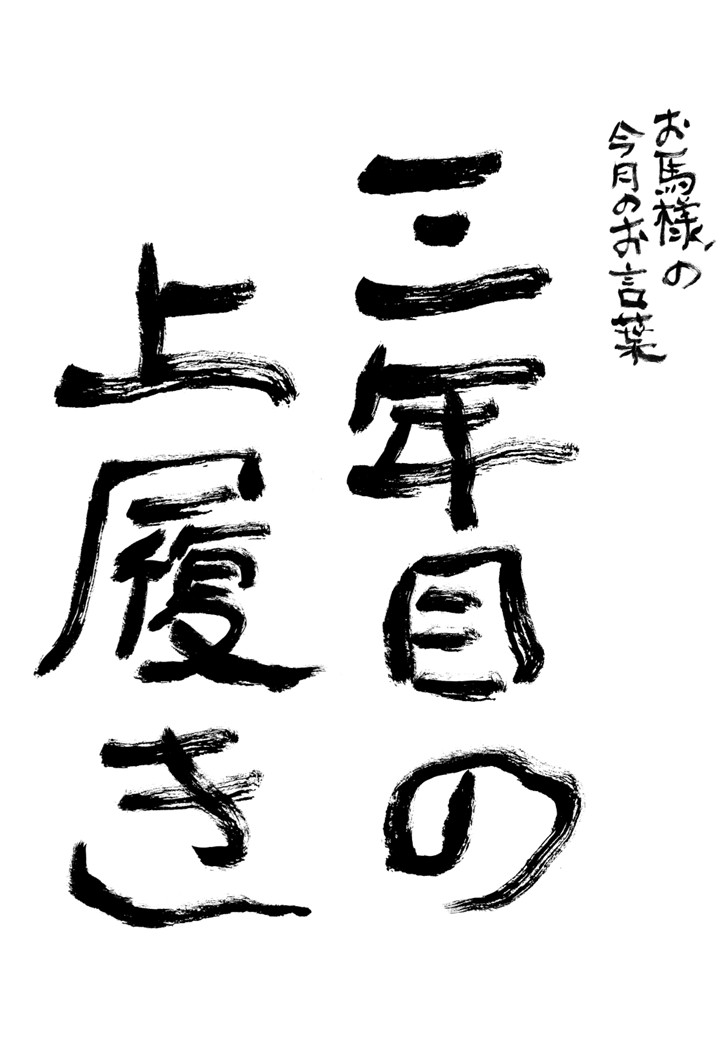 お馬様の
今月のお言葉
三年目の
上履き